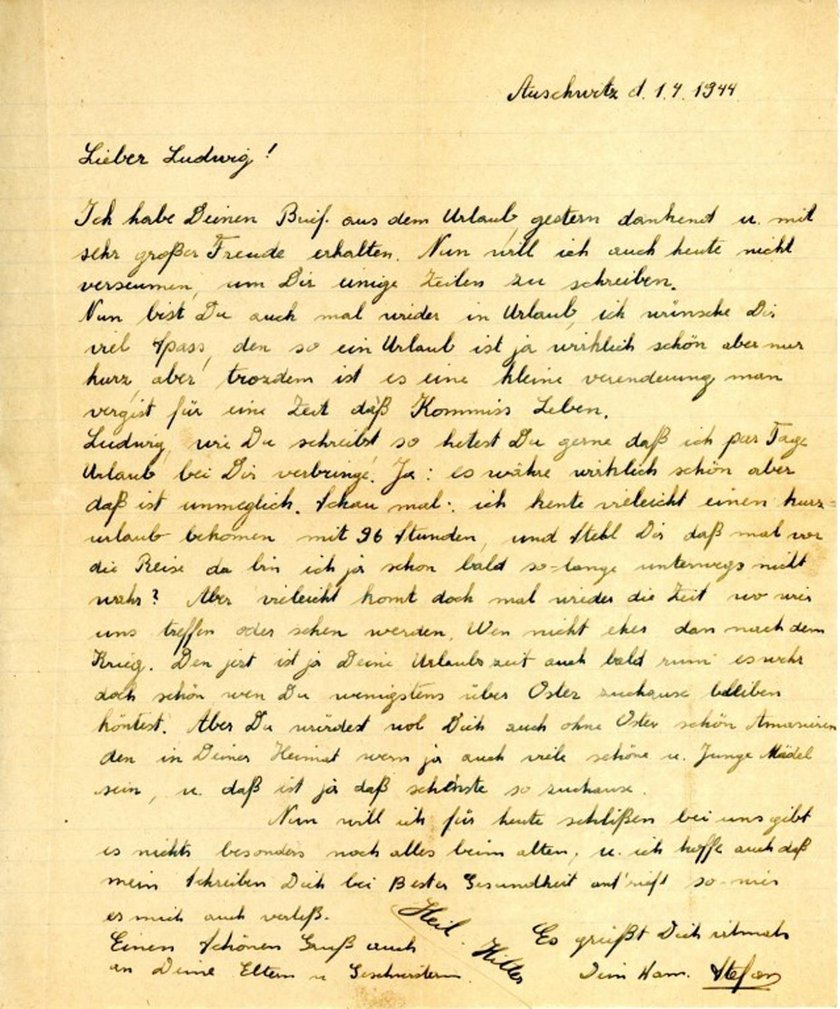 Auschwitz d. 1.4.1944
Lieber Ludwig!
Ich habe Deinen Brief. aus dem Urlaub, gestern dankend u. mit
sehr großer Freude erhalten. Nun will ich auch heute nicht
verseumen, um Dir einige Zeilen zu schreiben.
Nun bist Du auch mal wider in Urlaub, ich wünsche Dir
viel Spass, den so ein Urlaub ist ja wirklich schön aber nur
kurz, aber trozdem ist es eine kleine verenderung man
vergist für eine Zeit daß Kommiss Leben.
Ludwig, wie Du schreibst so hetest Du gerne daß ich par Tage
Urlaub bei Dir verbringe! Ja: es währe wirklich schön aber
daß ist unmeglich. Schau mal: ich kente vieleicht einen kurz-
urlaub bekomen mit 96 Stunden, und Stehl Dir daß mal vor
die Reise da bin ich ja schon bald so-lange unterwegs nicht
wahr? Aber vieleicht komt doch mal wieder die Zeit wo wir
uns treffen oder sehen werden. Wen nicht eher dan nach dem
Krieg. Den jezt ist ja Deine Urlaubszeit auch bald rum es wehr
doch schön wen Du wenigstens über Oster zuhause bleiben
köntest. Aber Du würdest wol Dich auch ohne Oster schön Amasieren
den in Deiner Heimat wern ja auch viele schöne u. Junge Mädel
sein, u. daß ist ja daß schönste so zuhause.
Nun will ich für heute schlißen bei uns gibt
es nichts besonders noch alles beim alten, u. ich hoffe auch daß
mein Schreiben Dich bei Bester Gesundheit antrift so-wie
es mich auch verleß.
Heil Hitler
Einen Schönen Gruß auch
an Deine Eltern u Geschwistern.
Es grüßt Dich
Dein Kam. Stefan